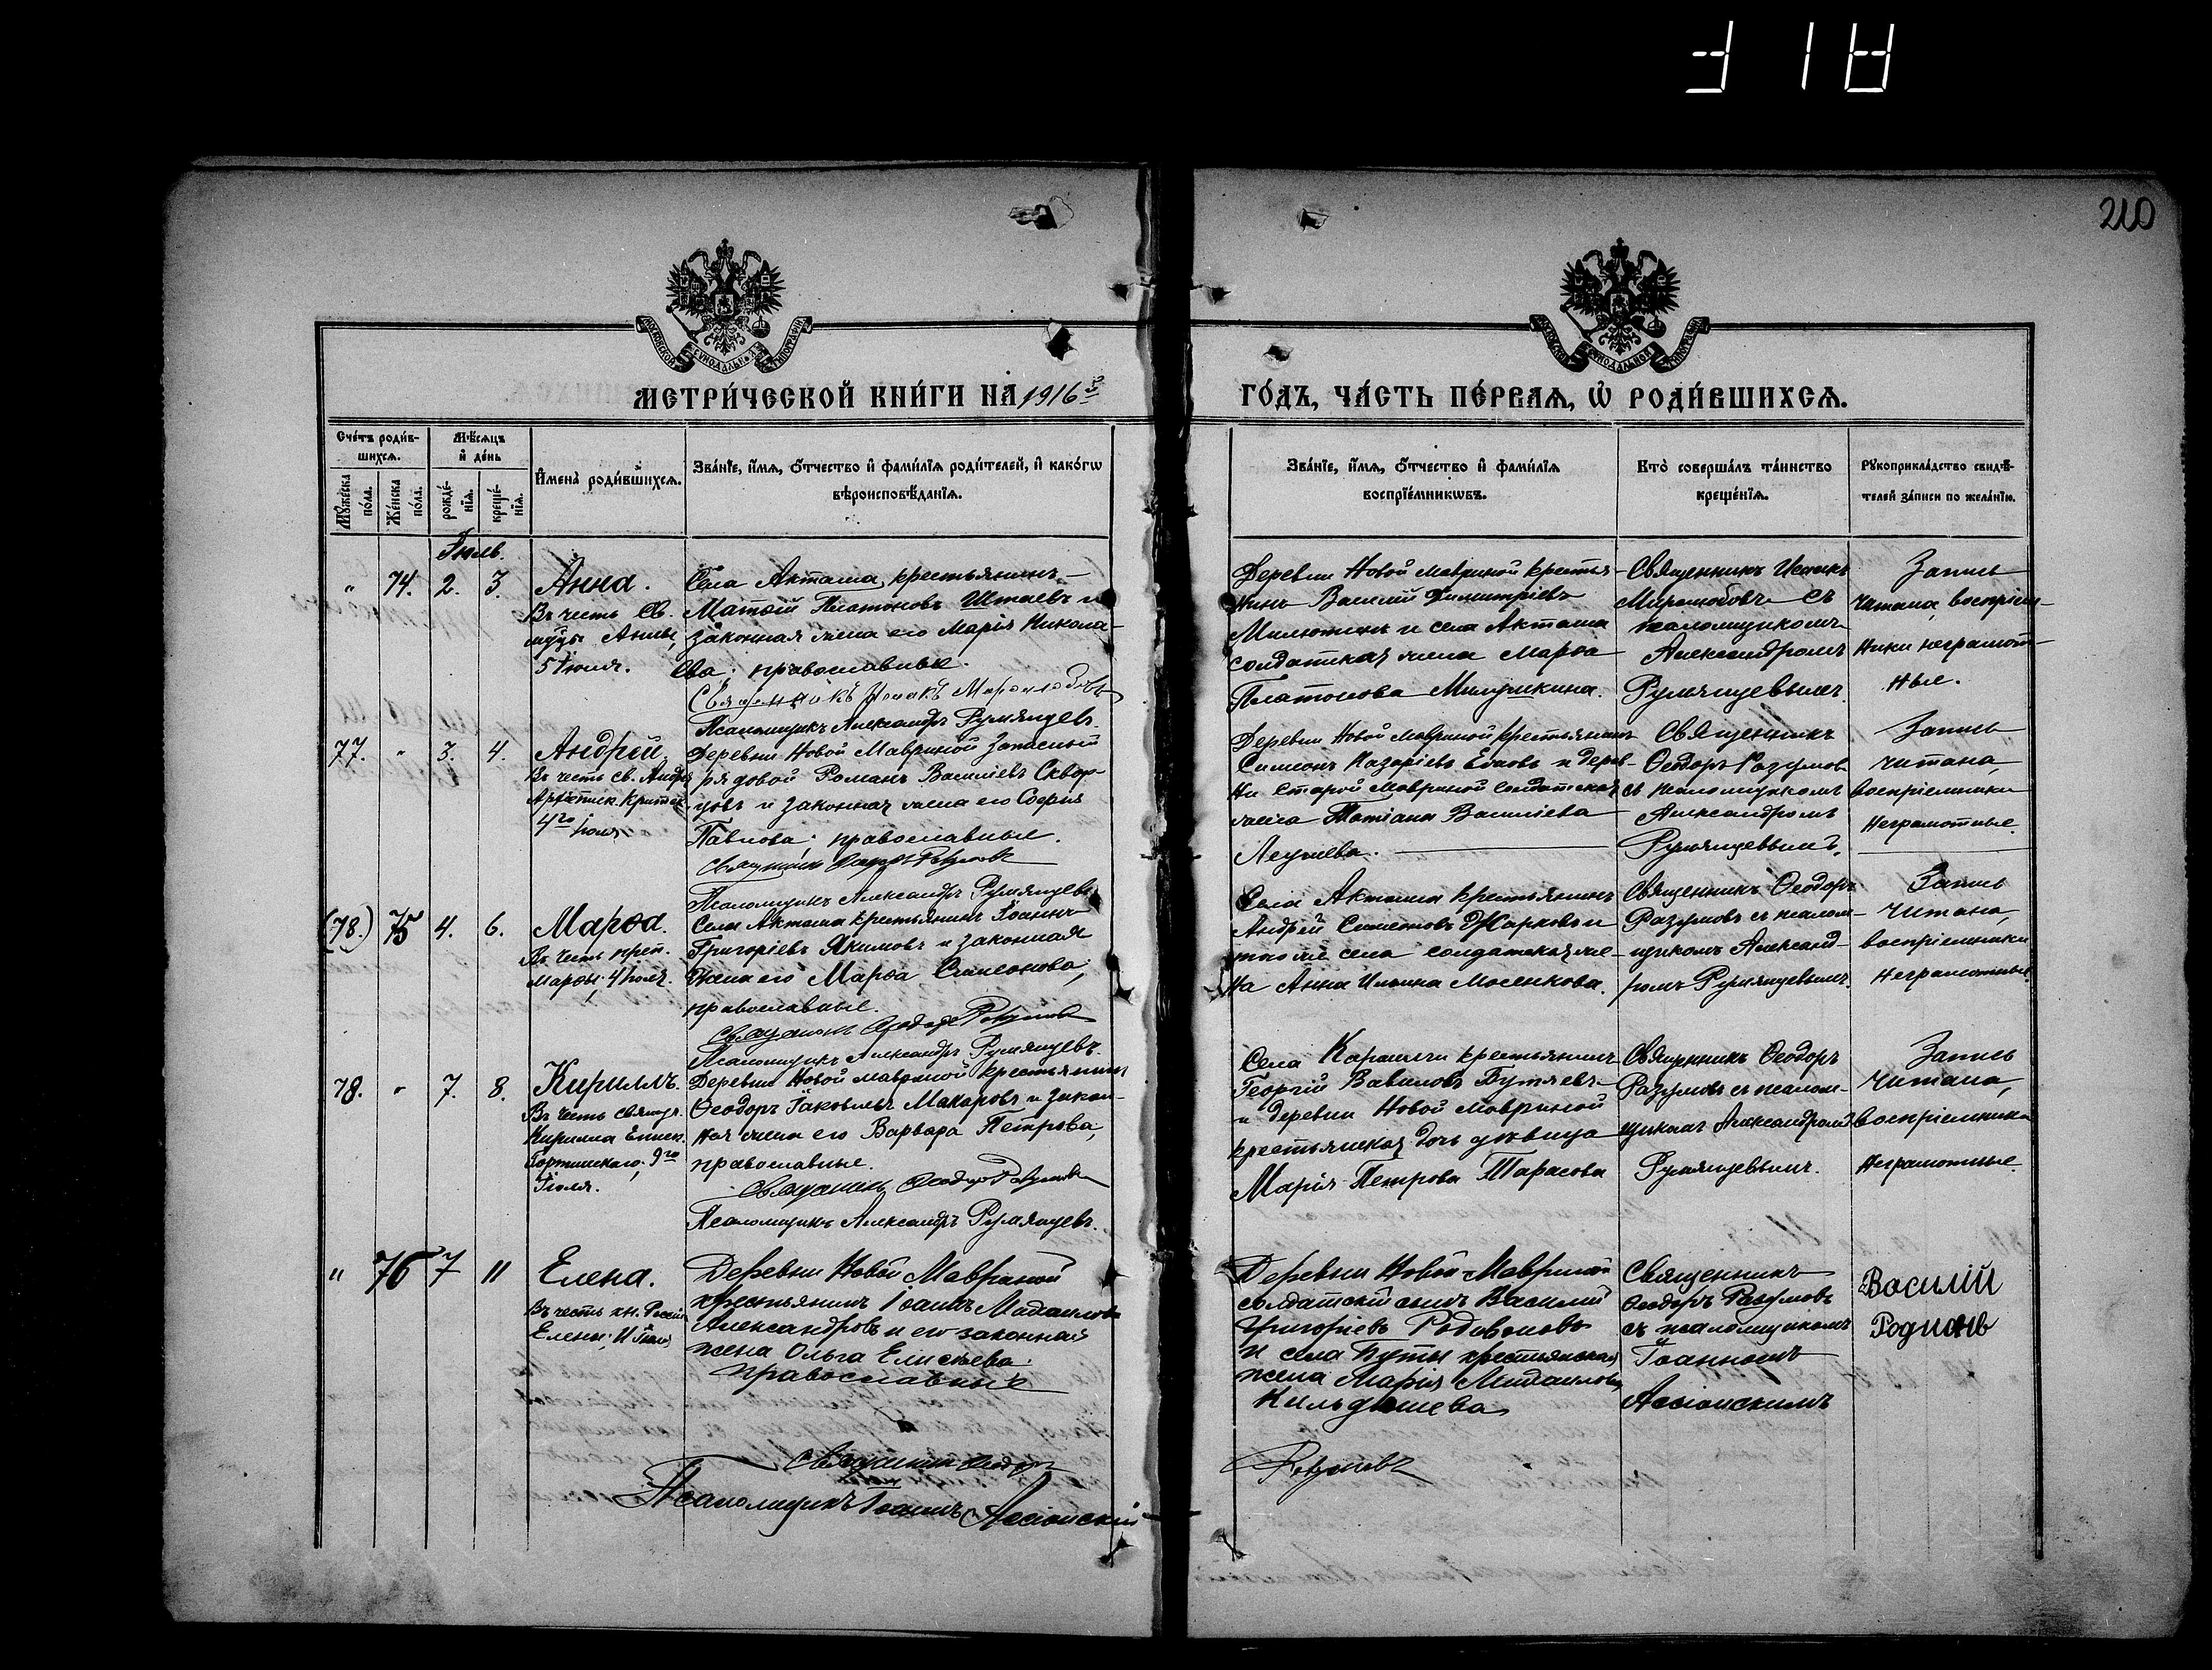 210
МОСКОВСКОЙ СѴНОДАЛЬНОЙ ТИПОГРАФІИ
МОСКОВСКОЙ СѴНОДАЛЬНОЙ ТИПОГРАФІИ
МЕТРИ́ЧЕСКОЙ КНИ́ГИ НА 1916й
ГО́ДЪ, ЧА́СТЬ ПЕ́РВАѦ, Ѡ҆ РОДИ́ВШИХСѦ.
Сче́тъ роди́в-
шихсѧ.
Мѣ́сѧцъ
и҆ де́нь
Мꙋ́жеска
по́ла.
Же́нска
по́ла.
рожде́-
нїѧ.
креще́-
нїѧ.
И҆мена̀ роди́вшихсѧ.
Зва́нїе, и҆́мѧ, ѻ҆́тчество и҆ фами́лїѧ роди́телей, и҆ како́гѡ
вѣроисповѣ́данїѧ.
Зва́нїе, и҆́мѧ, ѻ҆́тчество и҆ фами́лїѧ
воспрїе́мникѡвъ.
Кто̀ соверша́лъ та́инство
креще́нїѧ.
Рꙋкоприкла́дство свидѣ́-
телей за́писи по жела́нїю.
Іюль.
" 74. 2. 3.
Анна.
Въ честь Св.
муц. Анны,
5 іюля.
Села Акташа, крестьянинъ
Матѳій Платоновъ Штаевъ и
законная жена его Марія Никола-
ева; православные.
Священникъ Исаакъ Миролюбовъ
Псаломщикъ Александръ Румянцевъ.
Деревни Новой Мавриной крестья-
нинъ Василій Димитріевъ
Милютинъ и села Акташа
солдатская жена Марѳа
Платонова Милушкина.
Священникъ Исаакъ
Миролюбовъ съ
псаломщикомъ
Александромъ
Румянцевымъ.
Запись
читана, воспріем-
ники неграмот-
ные.
77. " 3. 4.
Андрей.
Въ честь св. Андрея
Архіеписк. Критск.
4го іюля
Деревни Новой Мавриной запасный
рядовой Романъ Василіевъ Сквор-
цовъ и законная жена его Софія
Павлова; православные.
Священникъ Ѳеодоръ Разумовъ
Псаломщикъ Александръ Румянцевъ.
Деревни Новой Мавриной крестьянинъ
Симеонъ Назаріевъ и Дерев-
ни Старой Мавриной солдатская
жена Татіана Василіева
Священникъ
Ѳеодоръ Разумовъ
съ псаломщикомъ
Александромъ
Румянцевымъ.
Запись
читана,
воспріемники
неграмотные.
(78.) 75 4. 6.
Марѳа.
Въ честь преп.
Марѳы; 4 іюля.
Села Акташа крестьянинъ Іоаннъ
Григоріевъ Якимовъ и законная
жена его Марѳа Симеонова;
православные.
Священникъ Ѳеодоръ Разумовъ
Псаломщикъ Александръ Румянцевъ.
Села Акташа крестьянинъ
Андрей Симеоновъ Жарковъ и
того же села солдатская же-
на Анна Ильина Мосенкова.
Священникъ Ѳеодоръ
Разумовъ съ псалом-
щикомъ Александ-
ромъ Румянцевымъ.
Запись
читана,
воспріемники
неграмотные.
78. " 7. 8.
Кириллъ.
Въ честь священ.
Кирилла Еписк.
Гортинскаго; 9го
Іюля.
Деревни Новой Мавриной крестьянинъ
Ѳеодоръ Іаковлевъ Макаровъ и закон-
ная жена его Варвара Петрова,
православные.
Священникъ Ѳеодоръ Разумовъ
Псаломщикъ Александръ Румянцевъ.
Села крестьянинъ
Георгій Вавиловъ Бутяевъ
и деревни Новой Мавриной
крестьянская дочь дѣвица
Марія Петрова Тарасова
Священникъ Ѳеодоръ
Разумовъ съ псалом-
щикомъ Александромъ
Румянцевымъ.
Запись
читана,
воспріемники
неграмотные.
" 76 7 11
Елена.
Въ честь кн. Россій
Елены; 11 Іюля
Деревни Новой Мавриной
крестьянинъ Іоаннъ Михаиловъ
Александровъ и его законная
жена Ольга Елисѣева;
православные
Священникъ Ѳеодоръ
Разумовъ
Псаломщикъ Іоаннъ Ассіонскій
Деревни Новой Мавриной
солдатскій сынъ Василій
Григоріевъ Родіоновъ
и села Буты крестьянская
жена Марія Михаилова
Кильдюшева
Священникъ
Ѳеодоръ Разумовъ
съ псаломщикомъ
Іоанномъ
Ассіонскимъ
Василій
Родионв